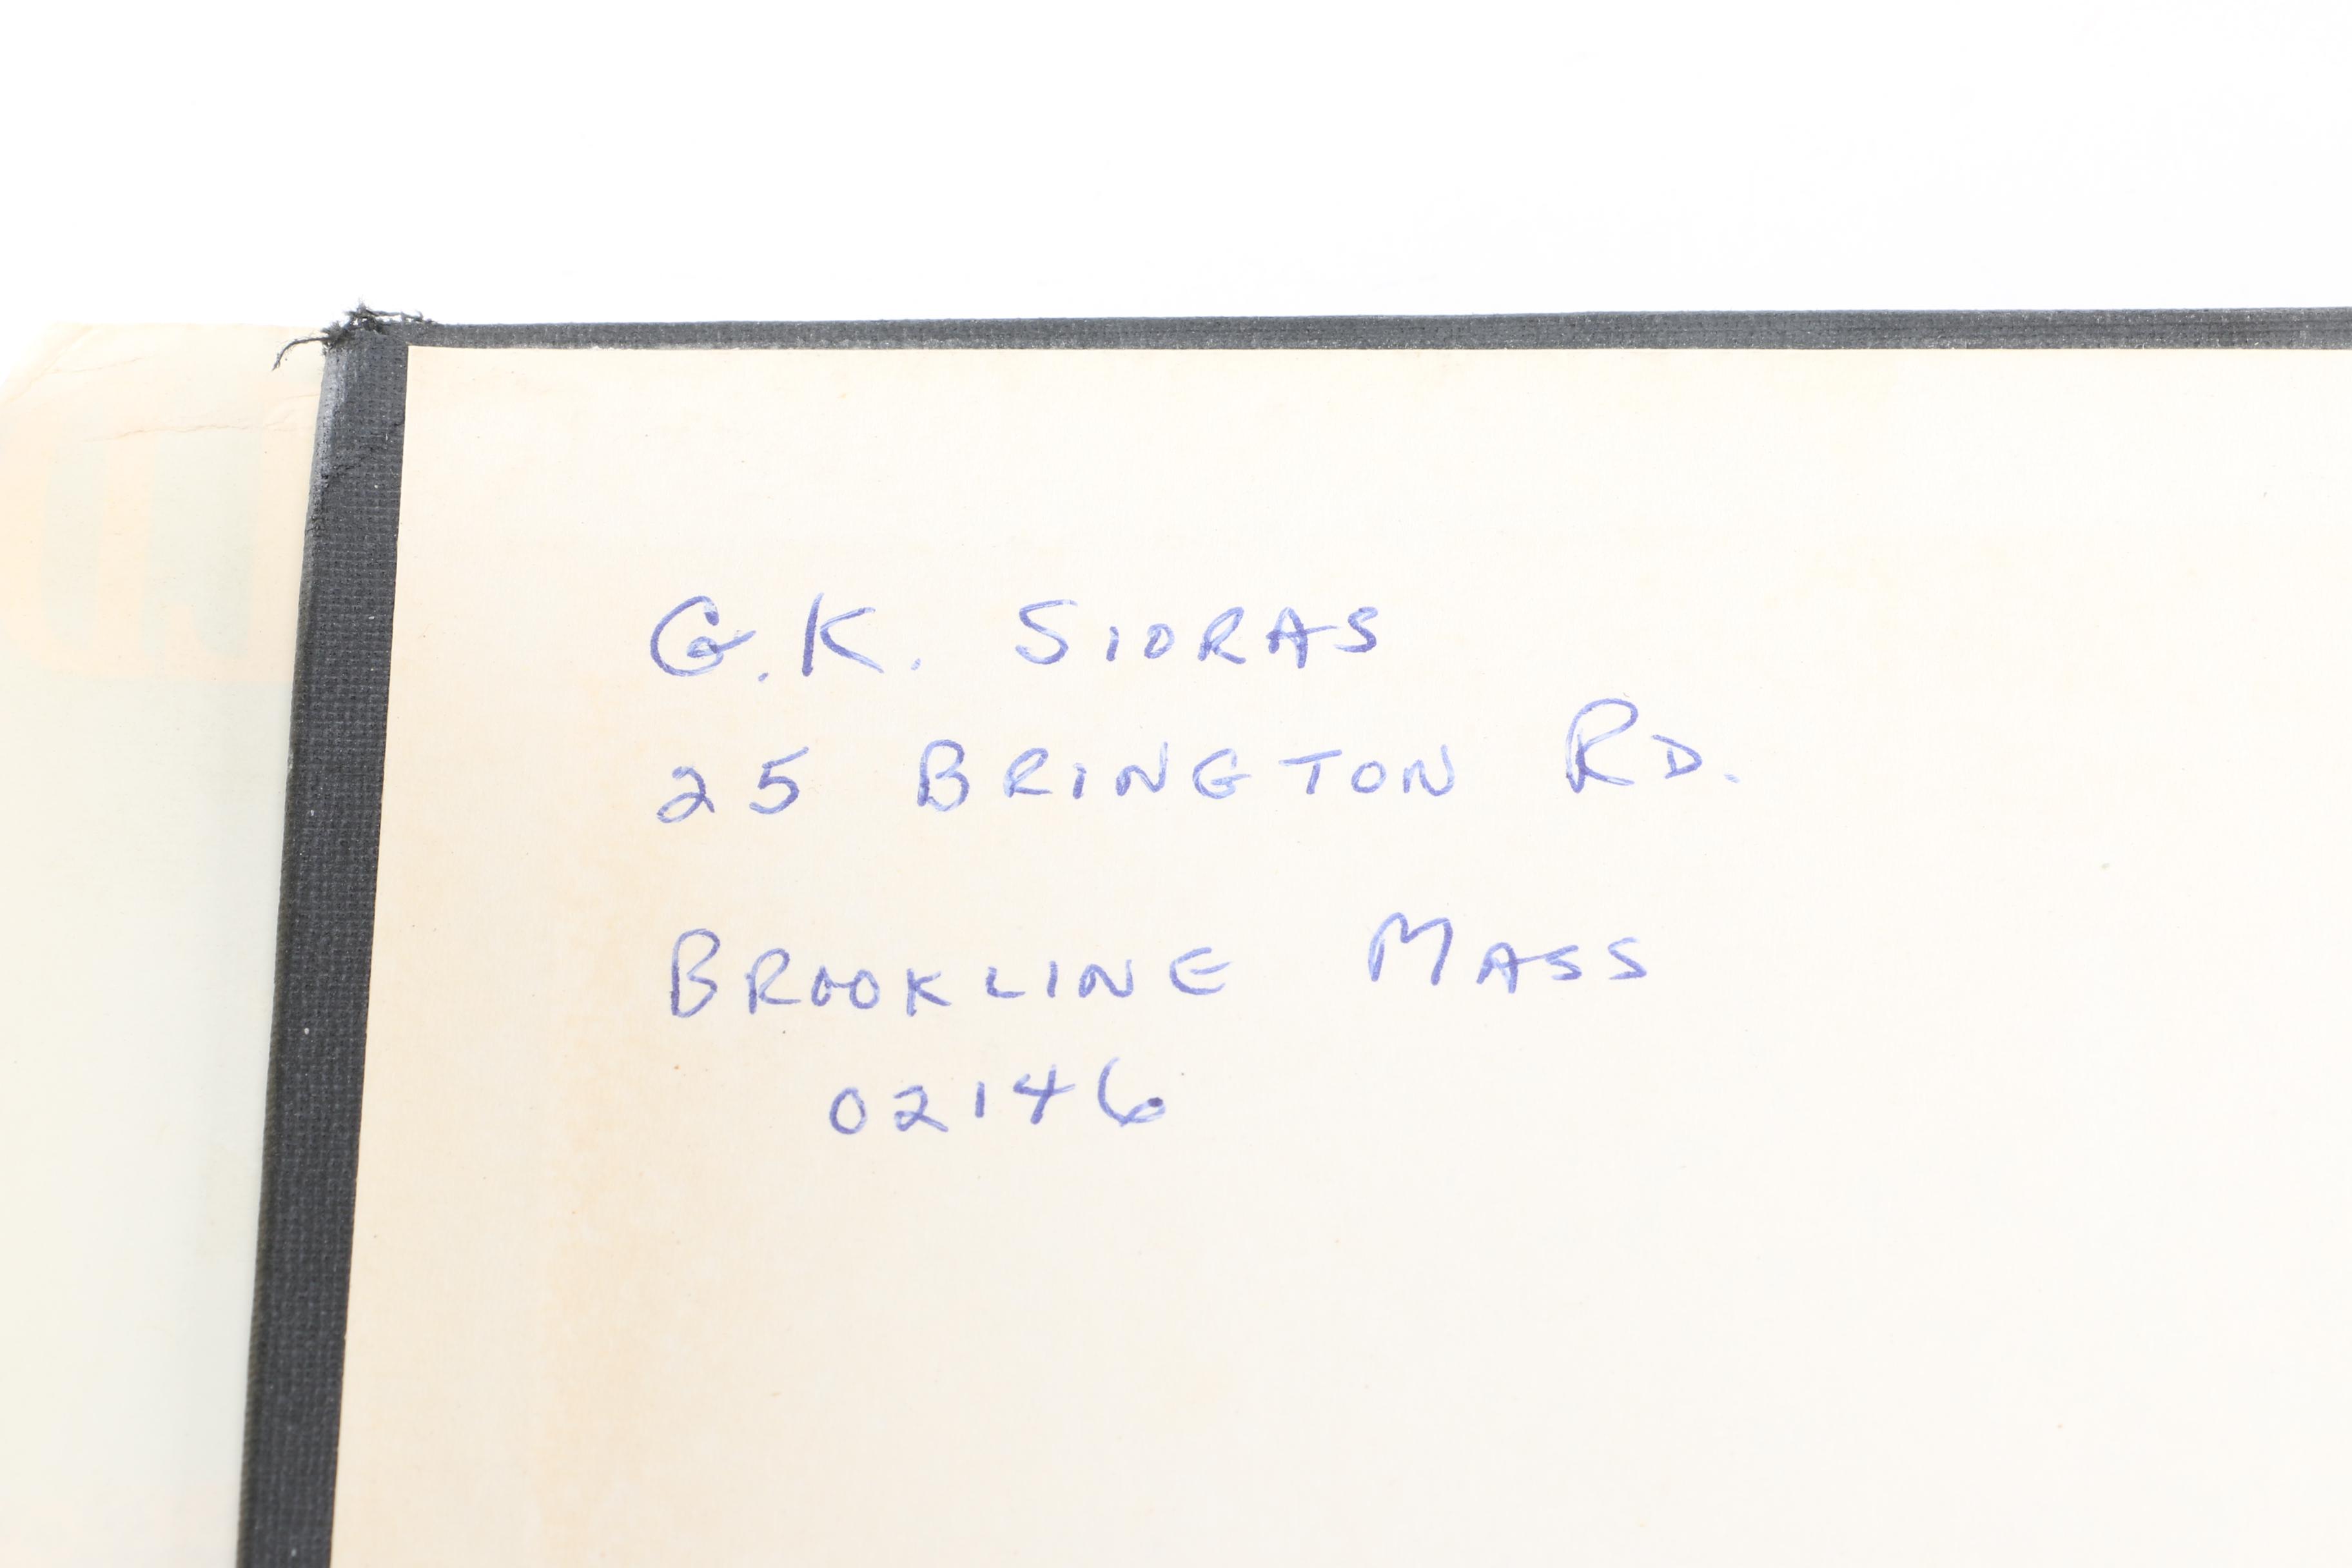 G.K. SIORAS
25 BRINGTON RD.
BROOKLINE MASS
02146